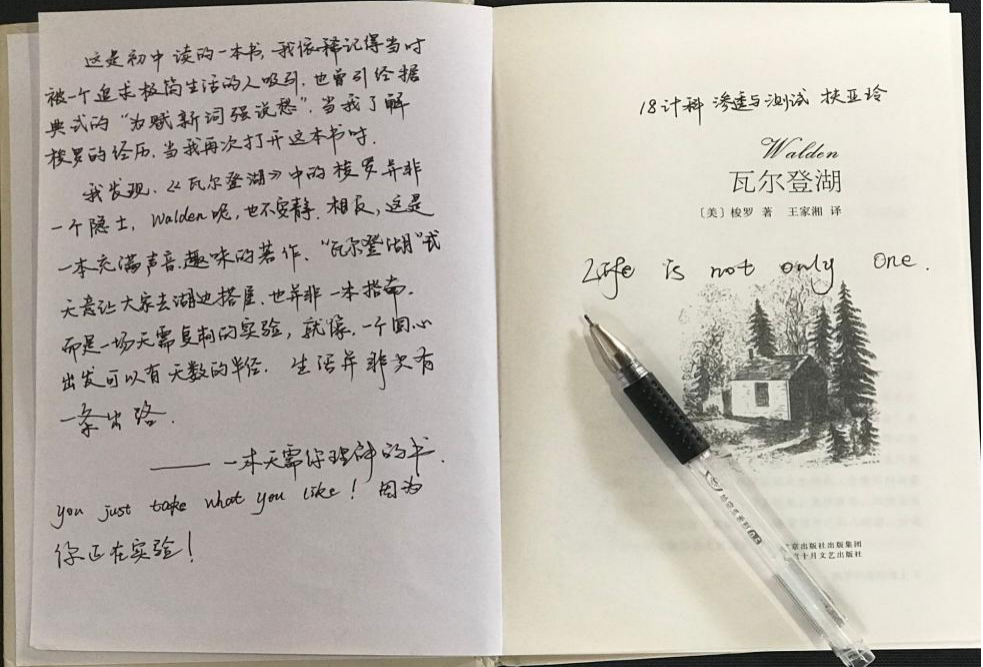 这是初中读的一本书,我依稀记得当时
被一个追求极简生活的人吸引.也曾引经据
典式的“为赋新词强说愁”.当我了解
梭罗的经历.当我再次打开这本书时.
我发现.《瓦尔登湖》中的梭罗并非
一个隐士, Walden呢,也不安静.相反,这是
一本充满声音,趣味的著作.“瓦尔登湖”式
无意让大家去湖边搭屋.也并非一本指南.
而是一场无需复制的实验,就像.一个圆心
出发可以有无数的半径. 生活并非只有
一条出路.
—— 一本无需你理解的书.
you just take what you like! 因为
你正在实验!
18计科 渗透与测试 扶亚玲
Walden
瓦尔登湖
〔美〕梭罗 著 王家湘 译
Life is not only one.
京出版社出版集团
十月文艺出版社